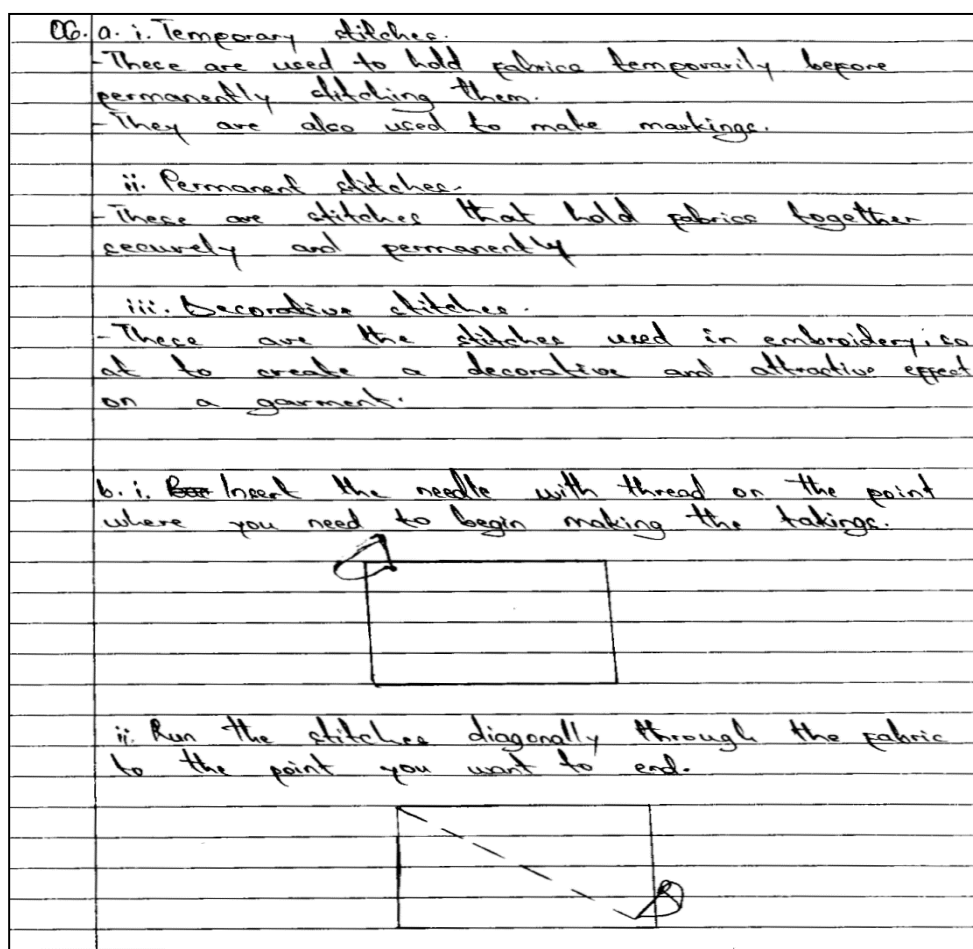 06. a. i. Temporary stitches.
- These are used to hold fabrics temporarily before
permanently stitching them.
- They are also used to make markings.
ii. Permanent stitches.
- These are stitches that hold fabrics together
securely and permanently
iii. Decorative stitches.
- These are the stitches used in embroidery, so
at to create a decorative and attractive effect
on a garment.
b. i. Insert the needle with thread on the point
where you need to begin making the takings.
ii. Run the stitches diagonally through the fabric
to the point you want to end.